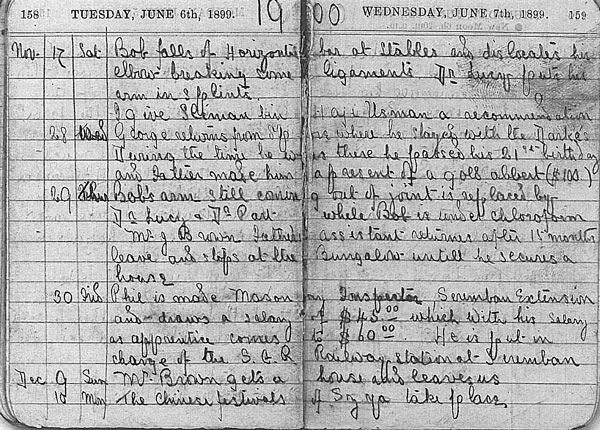 158 TUESDAY, JUNE 6th, 1899. 19 00 WEDNESDAY, JUNE 7th, 1899. 159
Nov. 17 Sat Bob falls off Horizontal bar at Stables and dislocates his
elbow breaking some ligaments Dr Lucy puts his
arm in splints
I give Sleman bin Haji Usman a recommendation
28 Wed George returns from where he stayed with the
During the time he was there he passed his 21st birthday
and Father made him a present of a gold albert ($100)
29 Thur Bob's arm still coming out of joint is replaced by
Dr Lucy & Dr while Bob is under chloroform
Mr J Brown Father's assistant returns after 15 months
leave and stops at the Bungalow untill he secures a
house
30 Frid Phil is made Mason Inspector Seremban Extension
and draws a salary of $45.00 which with his salary
as apprentice comes to $60.00. He is put in
charge of the S. & R Railway station at Seremban
Dec 9 Sun Mr Brown gets a house and leaves us
10 Mon The Chinese festivals of take place